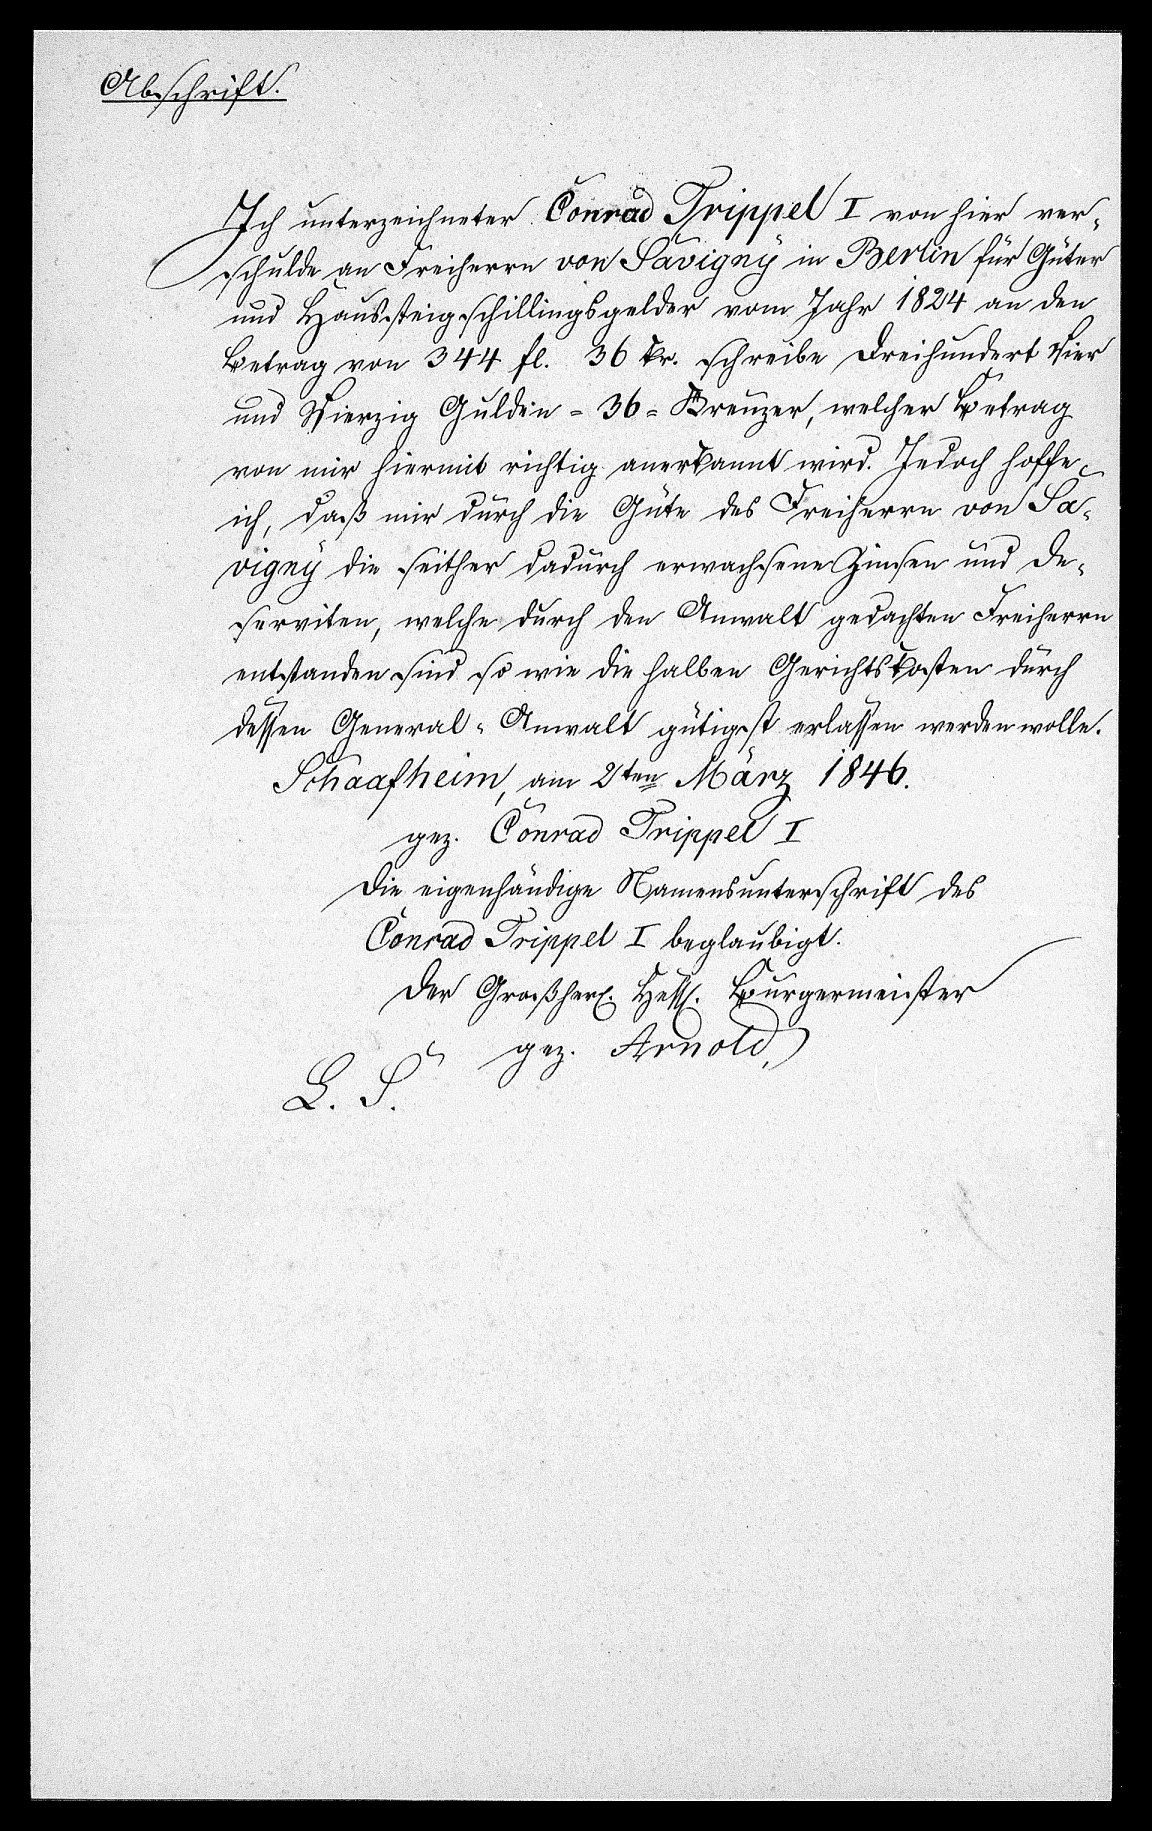 Abschrift.
Ich unterzeichneter Conrad Trippel I von hier ver-
schulde an Freiherrn von Savigny in Berlin für Güter
und Haussteigschillingsgelder vom Jahr 1824 an den
Betrag von 344 fl. 36 kr. schreibe Dreihundert Vier
und Vierzig Gulden = 36 = Kreuzer, welcher Betrag
von mir hiermit richtig anerkannt wird. Jedoch hoffe
ich, daß mir durch die Güte des Freiherrn von Sa-
vigny die seither dadurch erwachsene Zinsen und De-
serviten, welche durch den Anwalt gedachten Freiherrn
entstanden sind so wie die halben Gerichtskosten durch
dessen General-Anwalt gütigst erlassen werden wolle.
Schaafheim, am 2ten März 1846.
gez. Conrad Trippel I
Die eigenhändige Namensunterschrift des
Conrad Trippel I beglaubigt.
Der Großherz. Hess. Bürgermeister
gez. Arnold,
L. S.